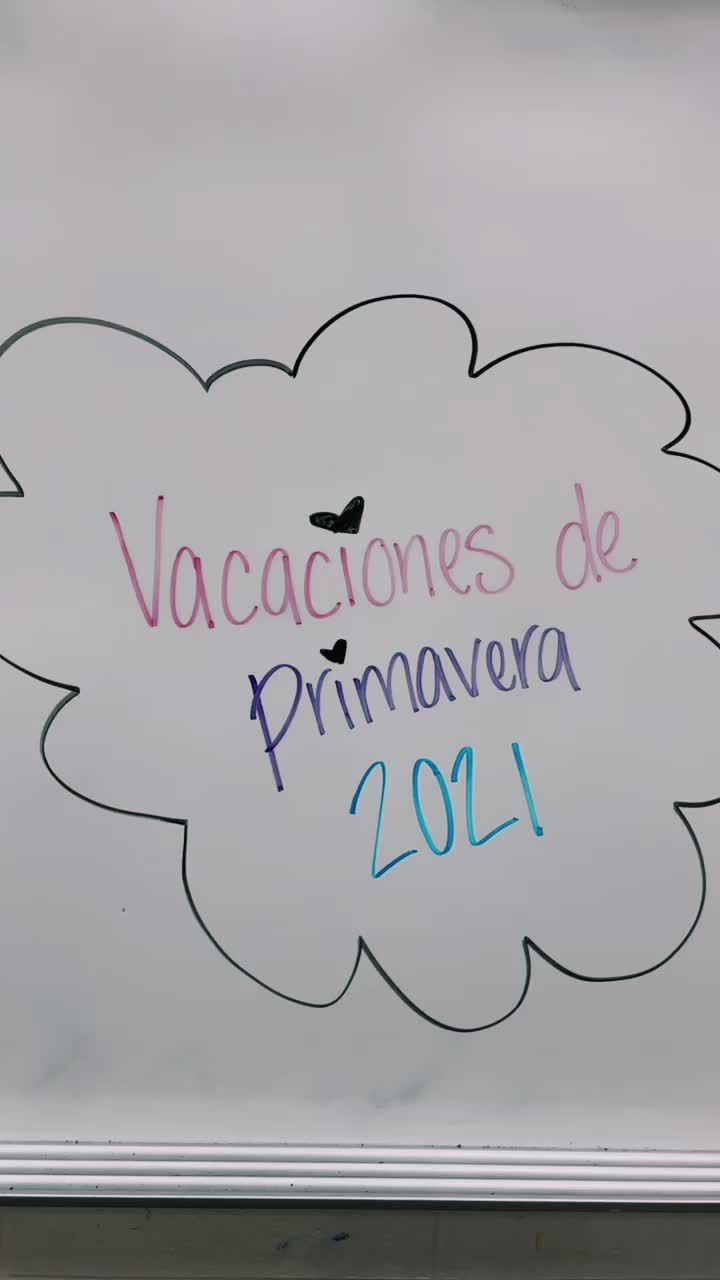 Vacaciones de
primavera
2021